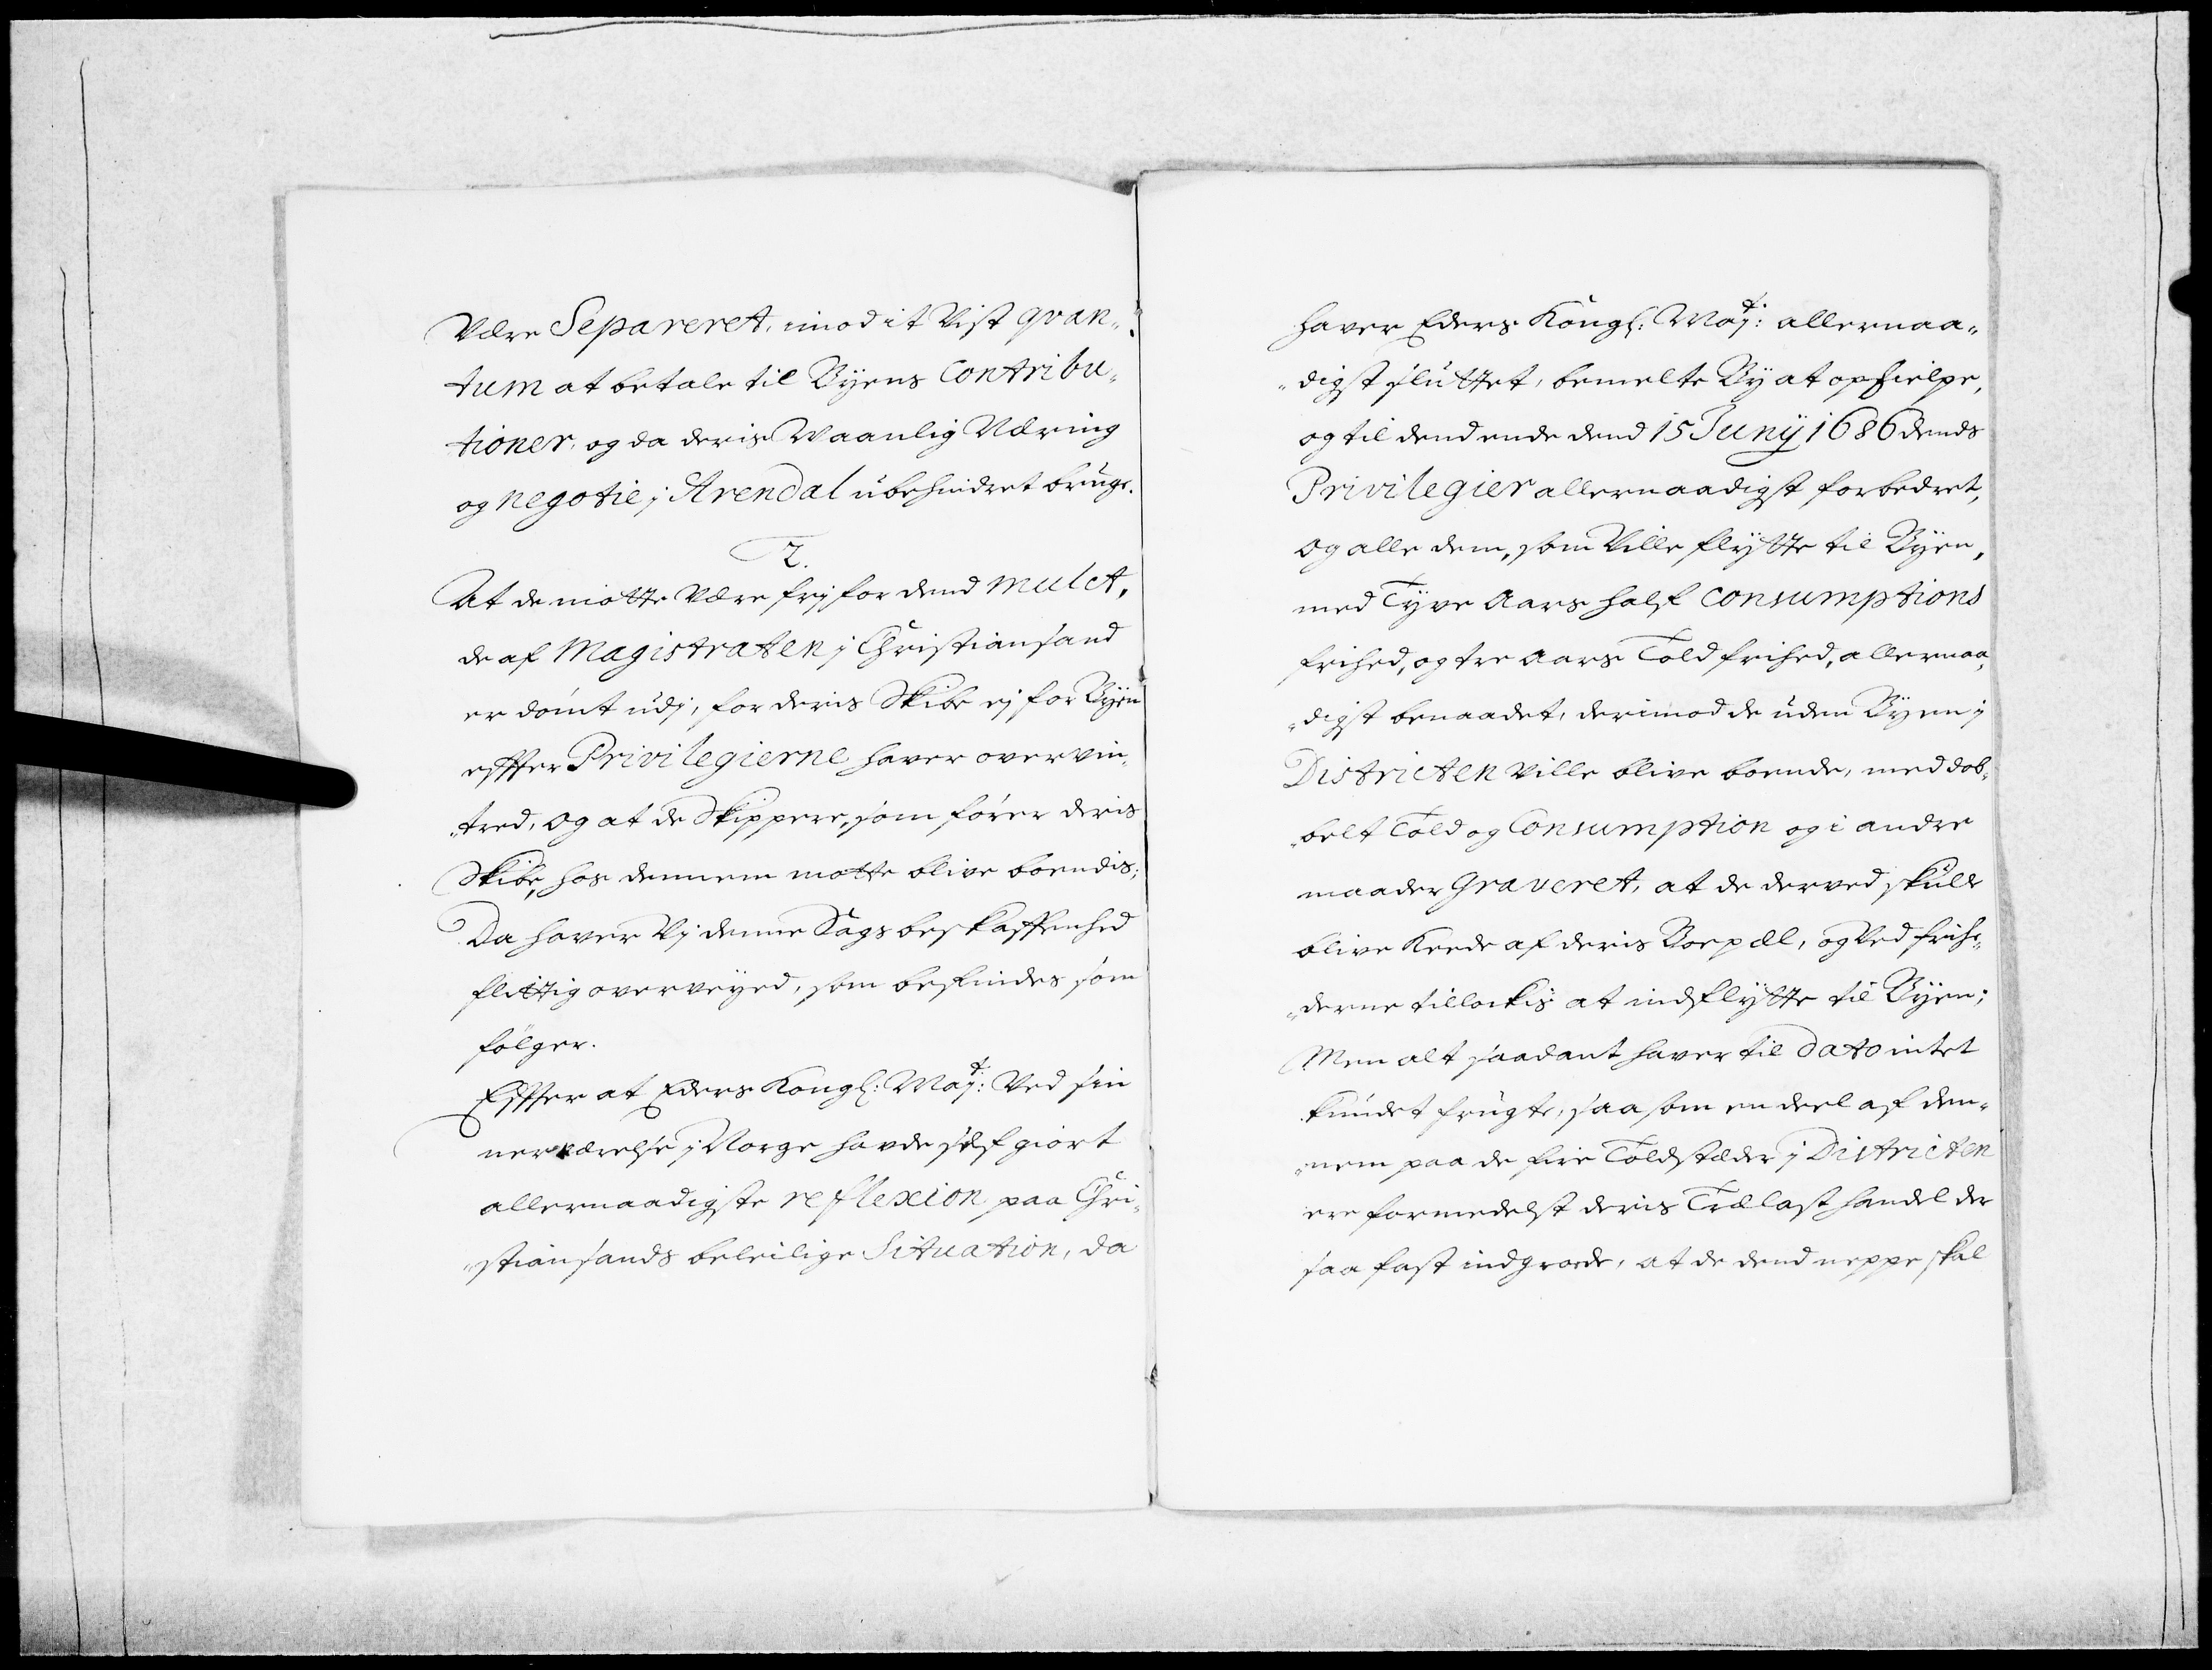 Være Separeret, imod it Vist qvan„
tum at betale til Byens Contribu„
tioner, og da deris Vaanlig Næring
og negotie j Arendal ubehindret bruge.
2.
At de motte Være frj for dend mulct,
de af Magistraten j Christiansand
er dömt udj, for deris Skibe ej for Byen
effter Privilegierne haver overvin„
„tred, Og at de Skippere, som förer deris
Skibe, hos dennem motte blive boendis;
Da haver Vj denne Sags beskaffenhed
flittig overveyed, som befindes som
fölger.
Effter at Eders Kongl: Mayt: Ved sin
nerværelse j Norge havde self giort
allernaadigste reflexion paa Chri„
„stiansands beleilige Situation, da
haver Eders Kongl: Mayt: allernaa„
„digst sluttet, bemelte By at ophielpe,
og til dend ende dend 15 Junij 1686 dends
Privilegier allernaadigst forbedret,
Og alle dem, som Ville flytte til Byen,
med Tyve Aars half Consumptions
frihed, og tre Aars Told frihed, allernaa„
„digst benaadet, derimod de uden Byen j
Districten Ville blive boende, med dob„
„belt Told og Consumption og i andre
maader graveret, at de derved skulle
blive Keede af deris Boepæl, og Ved frihe„
„derne tillockis at indflytte til Byen;
Men alt saadant haver til dato intet
kundet frugte, saasom en deel af den„
„nem paa de fire Toldstæder j Districten
ere formedelst deris Trælast handel der
saa fast indgroede, at de dend neppe skal